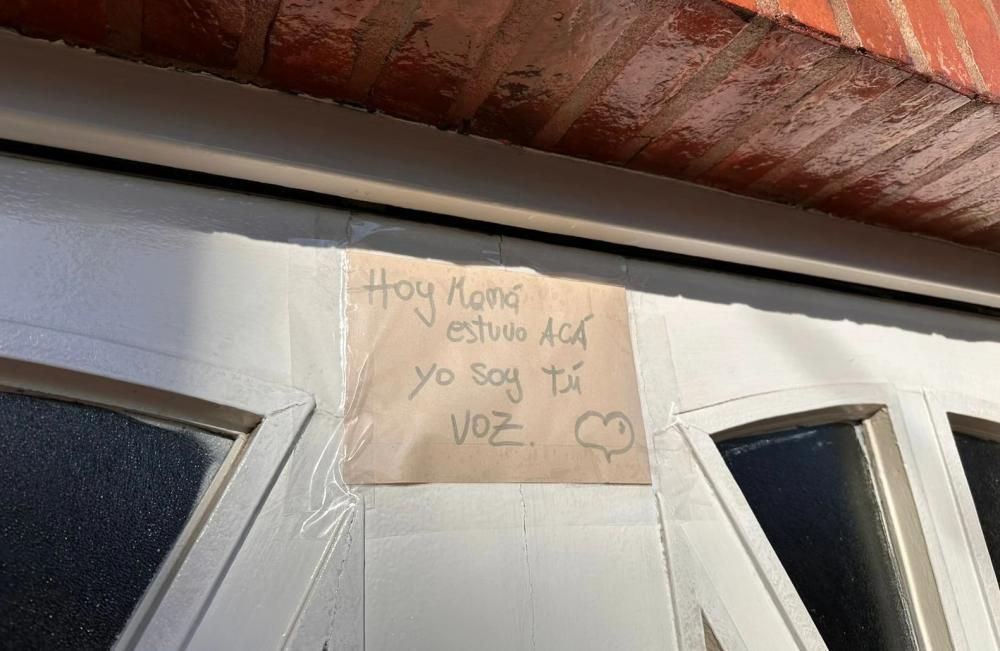 Hoy Mamá
estuvo ACÁ
yo soy tú
voz.